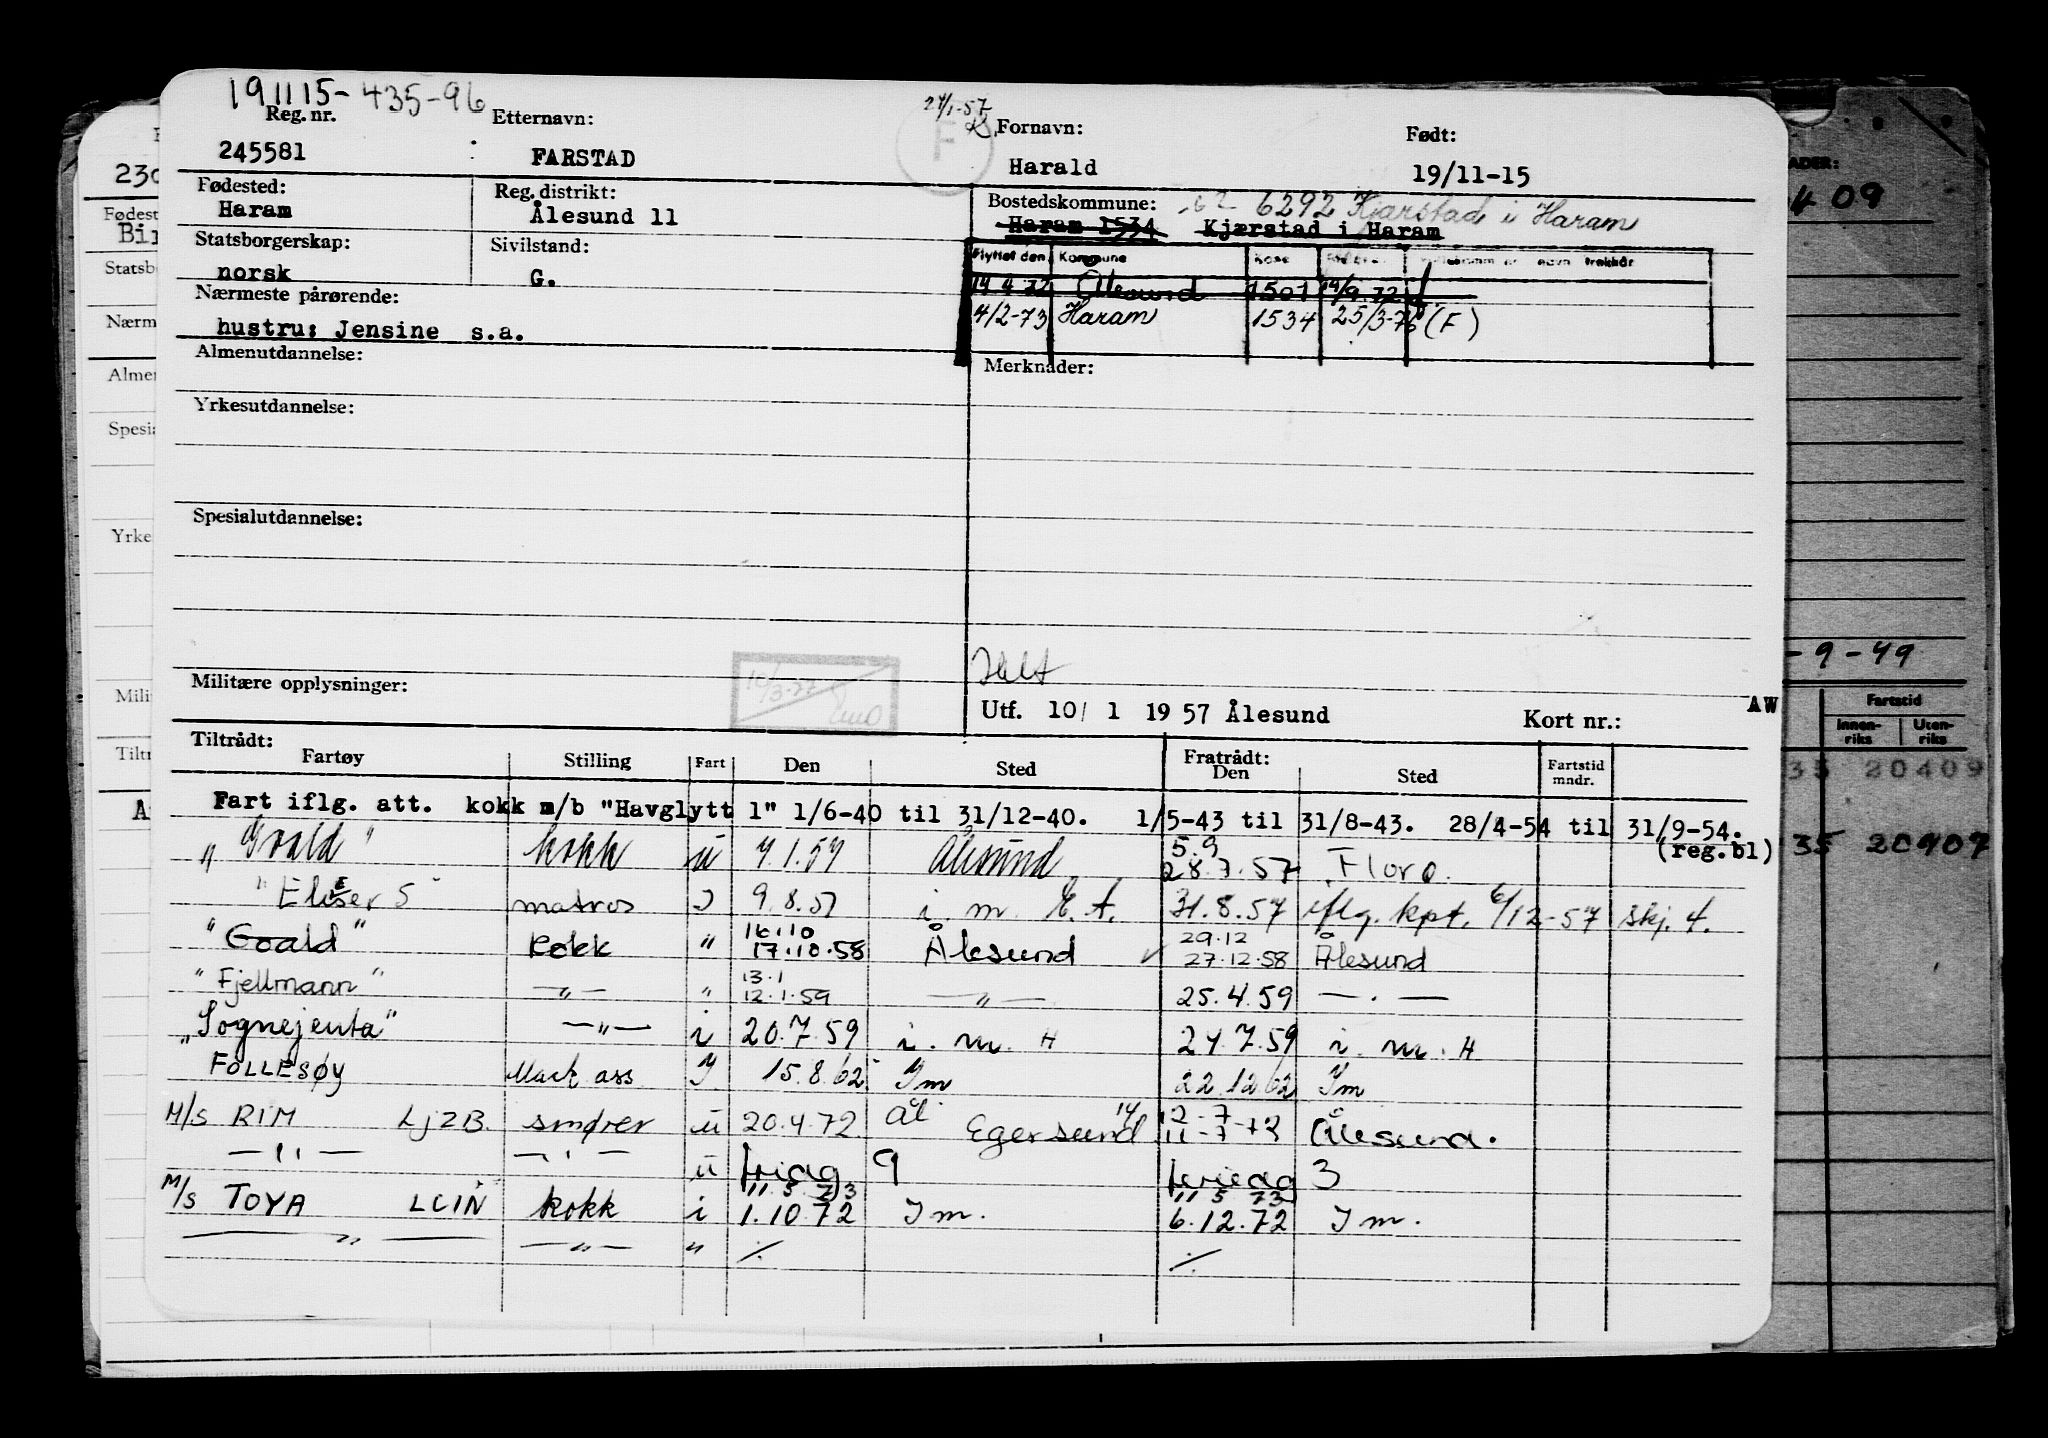 191115-435-96
Reg. nr. Etternavn: 24/1-57 Fornavn: Født:
245581 FARSTAD F Harald 19/11-15
Fødested: Reg. distrikt: Bostedskommune: 6292 Kjørstad i Haram
Haram Ålesund 11 Haram 1534 Kjærstad i Haram
Statsborgerskap: Sivilstand: Flyttet den Kommune
norsk G. 14 4 72 Ålesund 1501 14/9.72
Nærmeste pårørende: 4/2-73 Haram 1534 25/3-76 (F)
hustru: Jensine s.a.
Almenutdannelse: Merknader:
Yrkesutdannelse:
Spesialutdannelse:
Militære opplysninger:
Utf. 10/ 1 19 57 Ålesund Kort nr.: AW
Tiltrådt: Fratrådt:
Fartøy Stilling Fart Den Sted Den Sted Fartstid mndr.
Fart iflg. att. kokk m/b "Havglytt 1" 1/6-40 til 31/12-40. 1/5-43 til 31/8-43. 28/4-54 til 31/9-54.
(reg.bl)
" Goald " kokk u 7.1.57 Ålesund 5.9 28.7.57 Florø.
" Elieser S " matros I 9.8.57 i. m. E. A. 31.8.57 iflg. kpt. 6/12-57 skj. 4.
" Goald " kokk " 16.10 17.10.58 Ålesund 29.12 27.12.58 Ålesund
" Fjellmann " —"— " 13.1 12.1.59 —"— 25.4.59 —.—
" Sognejenta " —"— i 20.7.59 i. m. H 24.7.59 i. m. H
FOLLESØY Mask ass I 15.8.62 Im 22.12.62 Im
M/S RIM LJZB. smører u 20.4.72 Ål Egersund 14/ 12-7- 11-7-72 Ålesund.
—"— —"— u fridag 9 feriedag 3
11 5 73 11 5 73
M/S TOYA LCIN kokk i 1.10.72 Im. 6.12.72 Im.
—"— —"— " ./. ./.